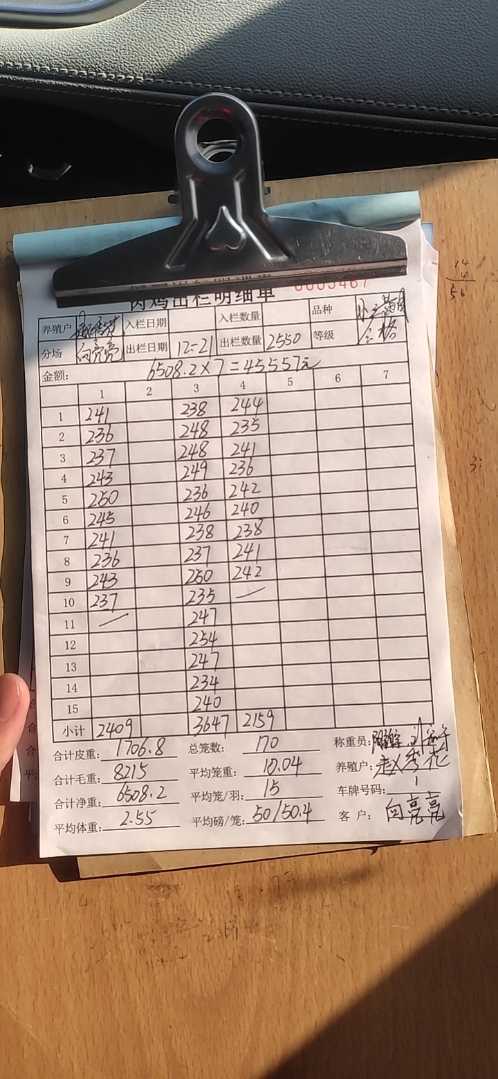 肉鸡出栏明细单
养殖户 入栏日期 入栏数量 品种
分场 向亮亮 出栏日期 12-21 出栏数量 2550 等级 合格
金额: 6508.2×7=45557元
1 2 3 4 5 6 7
1 241 238 244
2 236 248 235
3 237 248 241
4 243 249 236
5 250 236 242
6 245 246 240
7 241 238 238
8 236 237 241
9 243 250 242
10 237 235 —
11 — 247
12 254
13 247
14 234
15 240
小计 2409 3647 2159
合计皮重: 1706.8 总笼数: 170 称重员:
合计毛重: 8215 平均笼重: 10.04 养殖户: 赵秀花
合计净重: 6508.2 平均笼/羽: 15 车牌号码:
平均体重: 2.55 平均磅/笼: 50/50.4 客户: 向亮亮